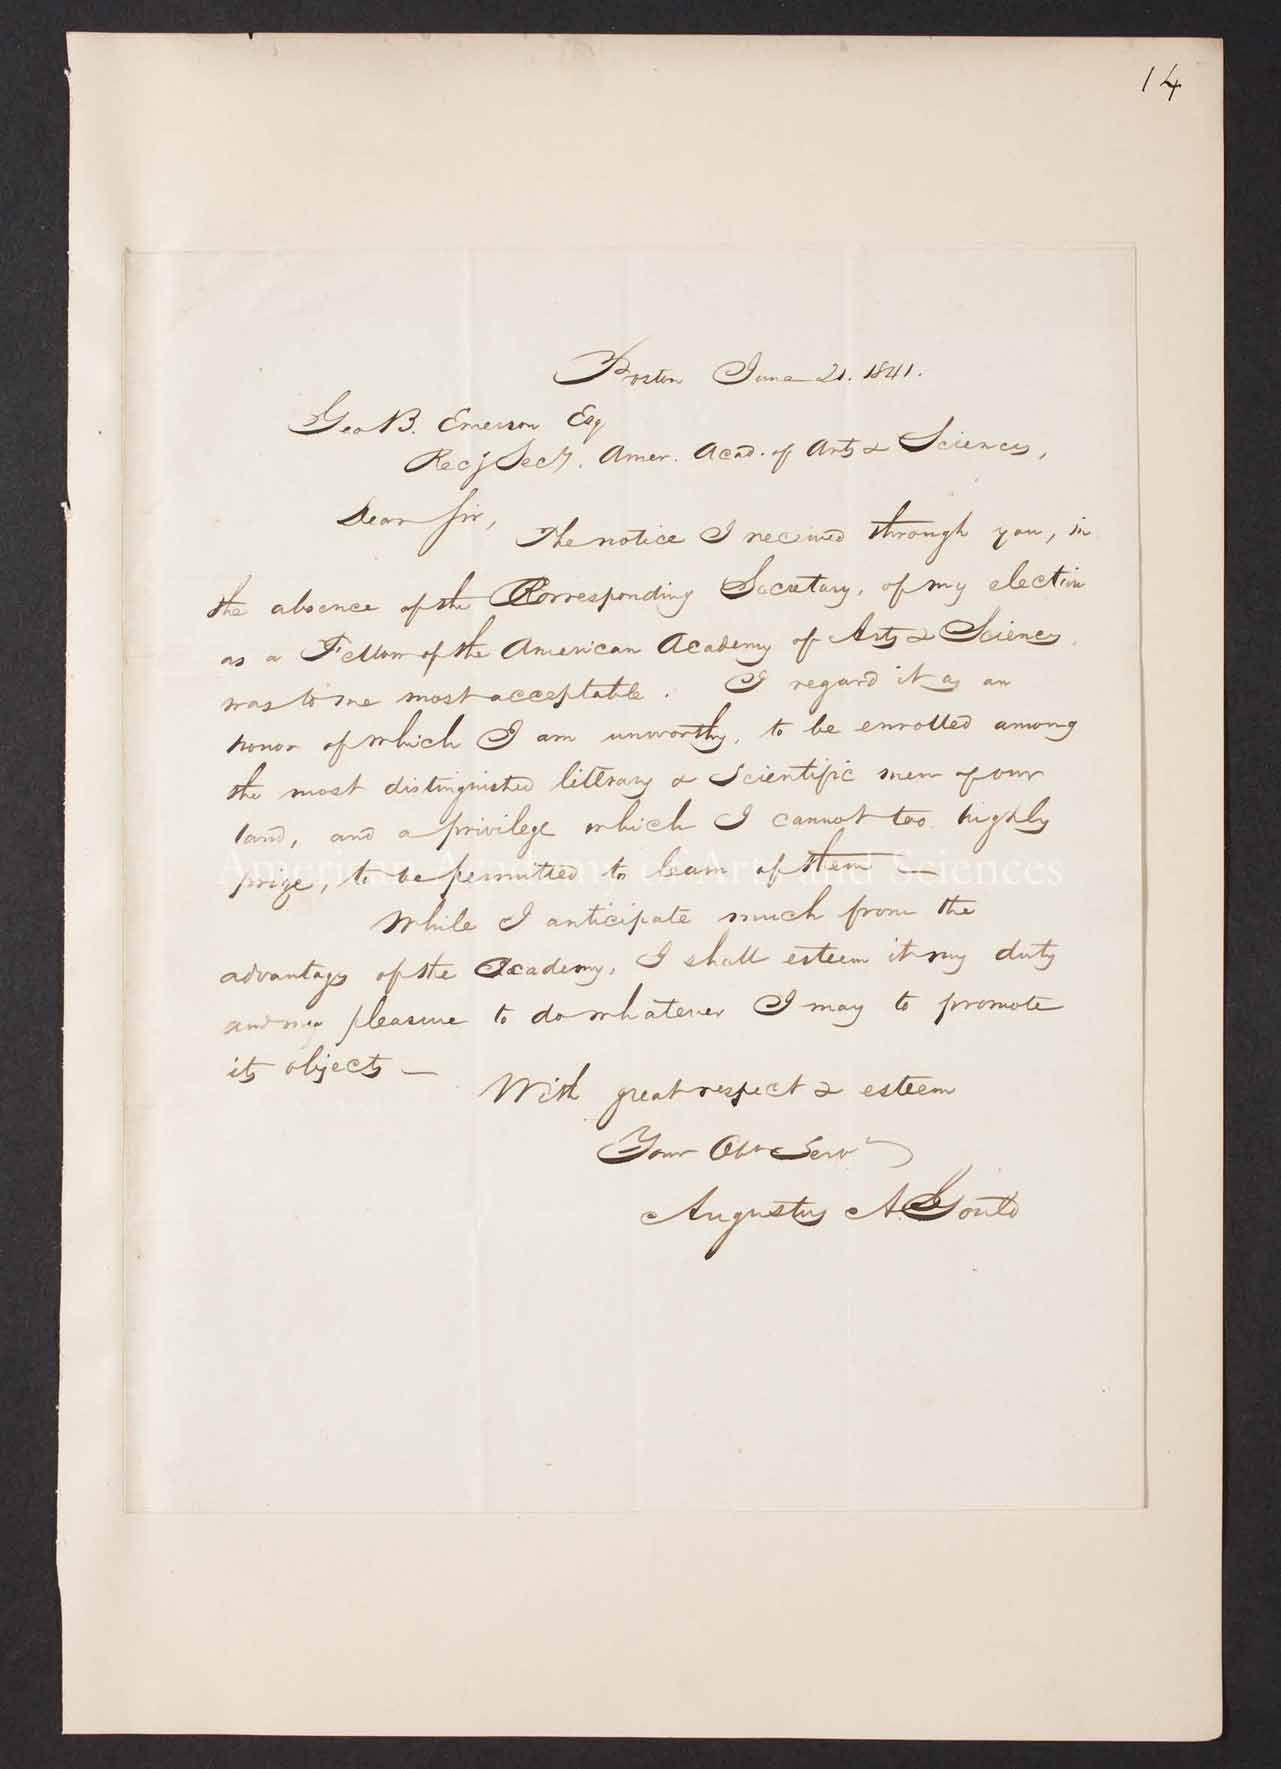 14
Boston June 21. 1841.
Geo B. Emerson Esq
Recg Secy. Amer. Acad. of Arts & Sciences,
Dear Sir,
The notice I received through you, in
the absence of the Corresponding Secretary, of my election
as a Fellow of the American Academy of Arts & Sciences,
was to me most acceptable. I regard it as an
honor of which I am unworthy, to be enrolled among
the most distinguished literary & Scientific men of our
land, and a privilege which I cannot too highly
American Academy of Arts and Sciences
prize, to be permitted to learn of them —
While I anticipate much from the
advantages of the Academy, I shall esteem it my duty
and my pleasure to do whatever I may to promote
its objects —
With great respect & esteem
Your Obt Servt
Augustus A. Gould